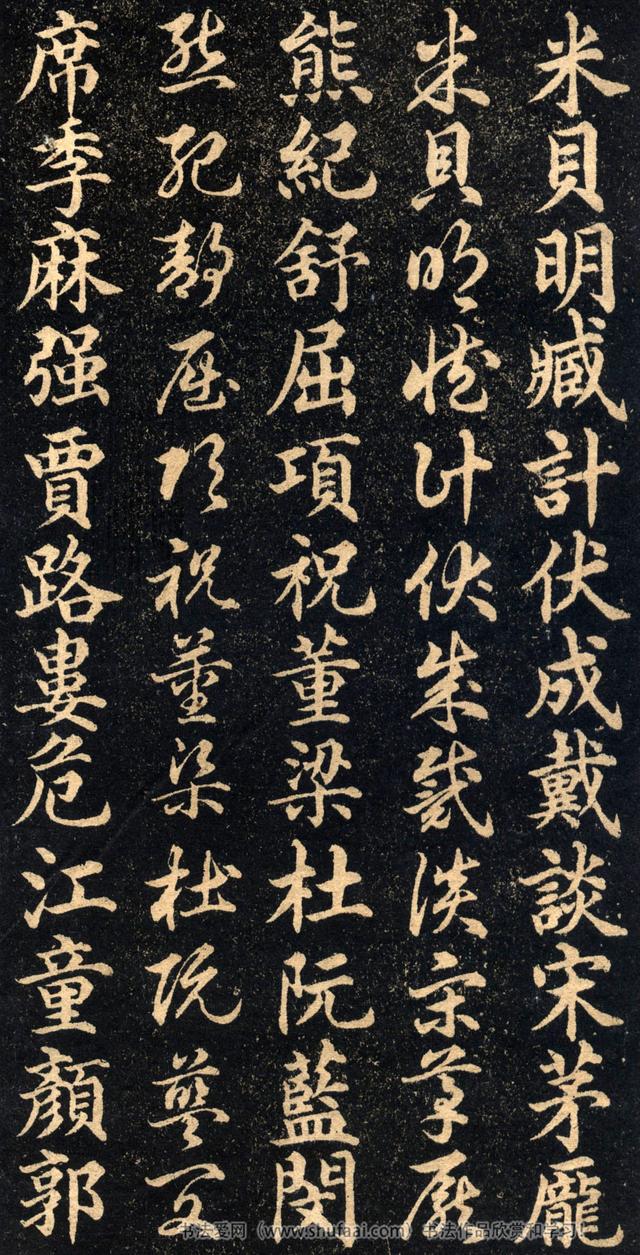 米貝明臧計伏成戴談宋茅龐
米貝明臧計伏成戴談宋茅龐
熊紀舒屈項祝董梁杜阮藍閔
熊紀舒屈項祝董梁杜阮藍閔
席季麻强賈路婁危江童顏郭
书法爱网（www.shufaai.com）书法作品欣赏和学习！